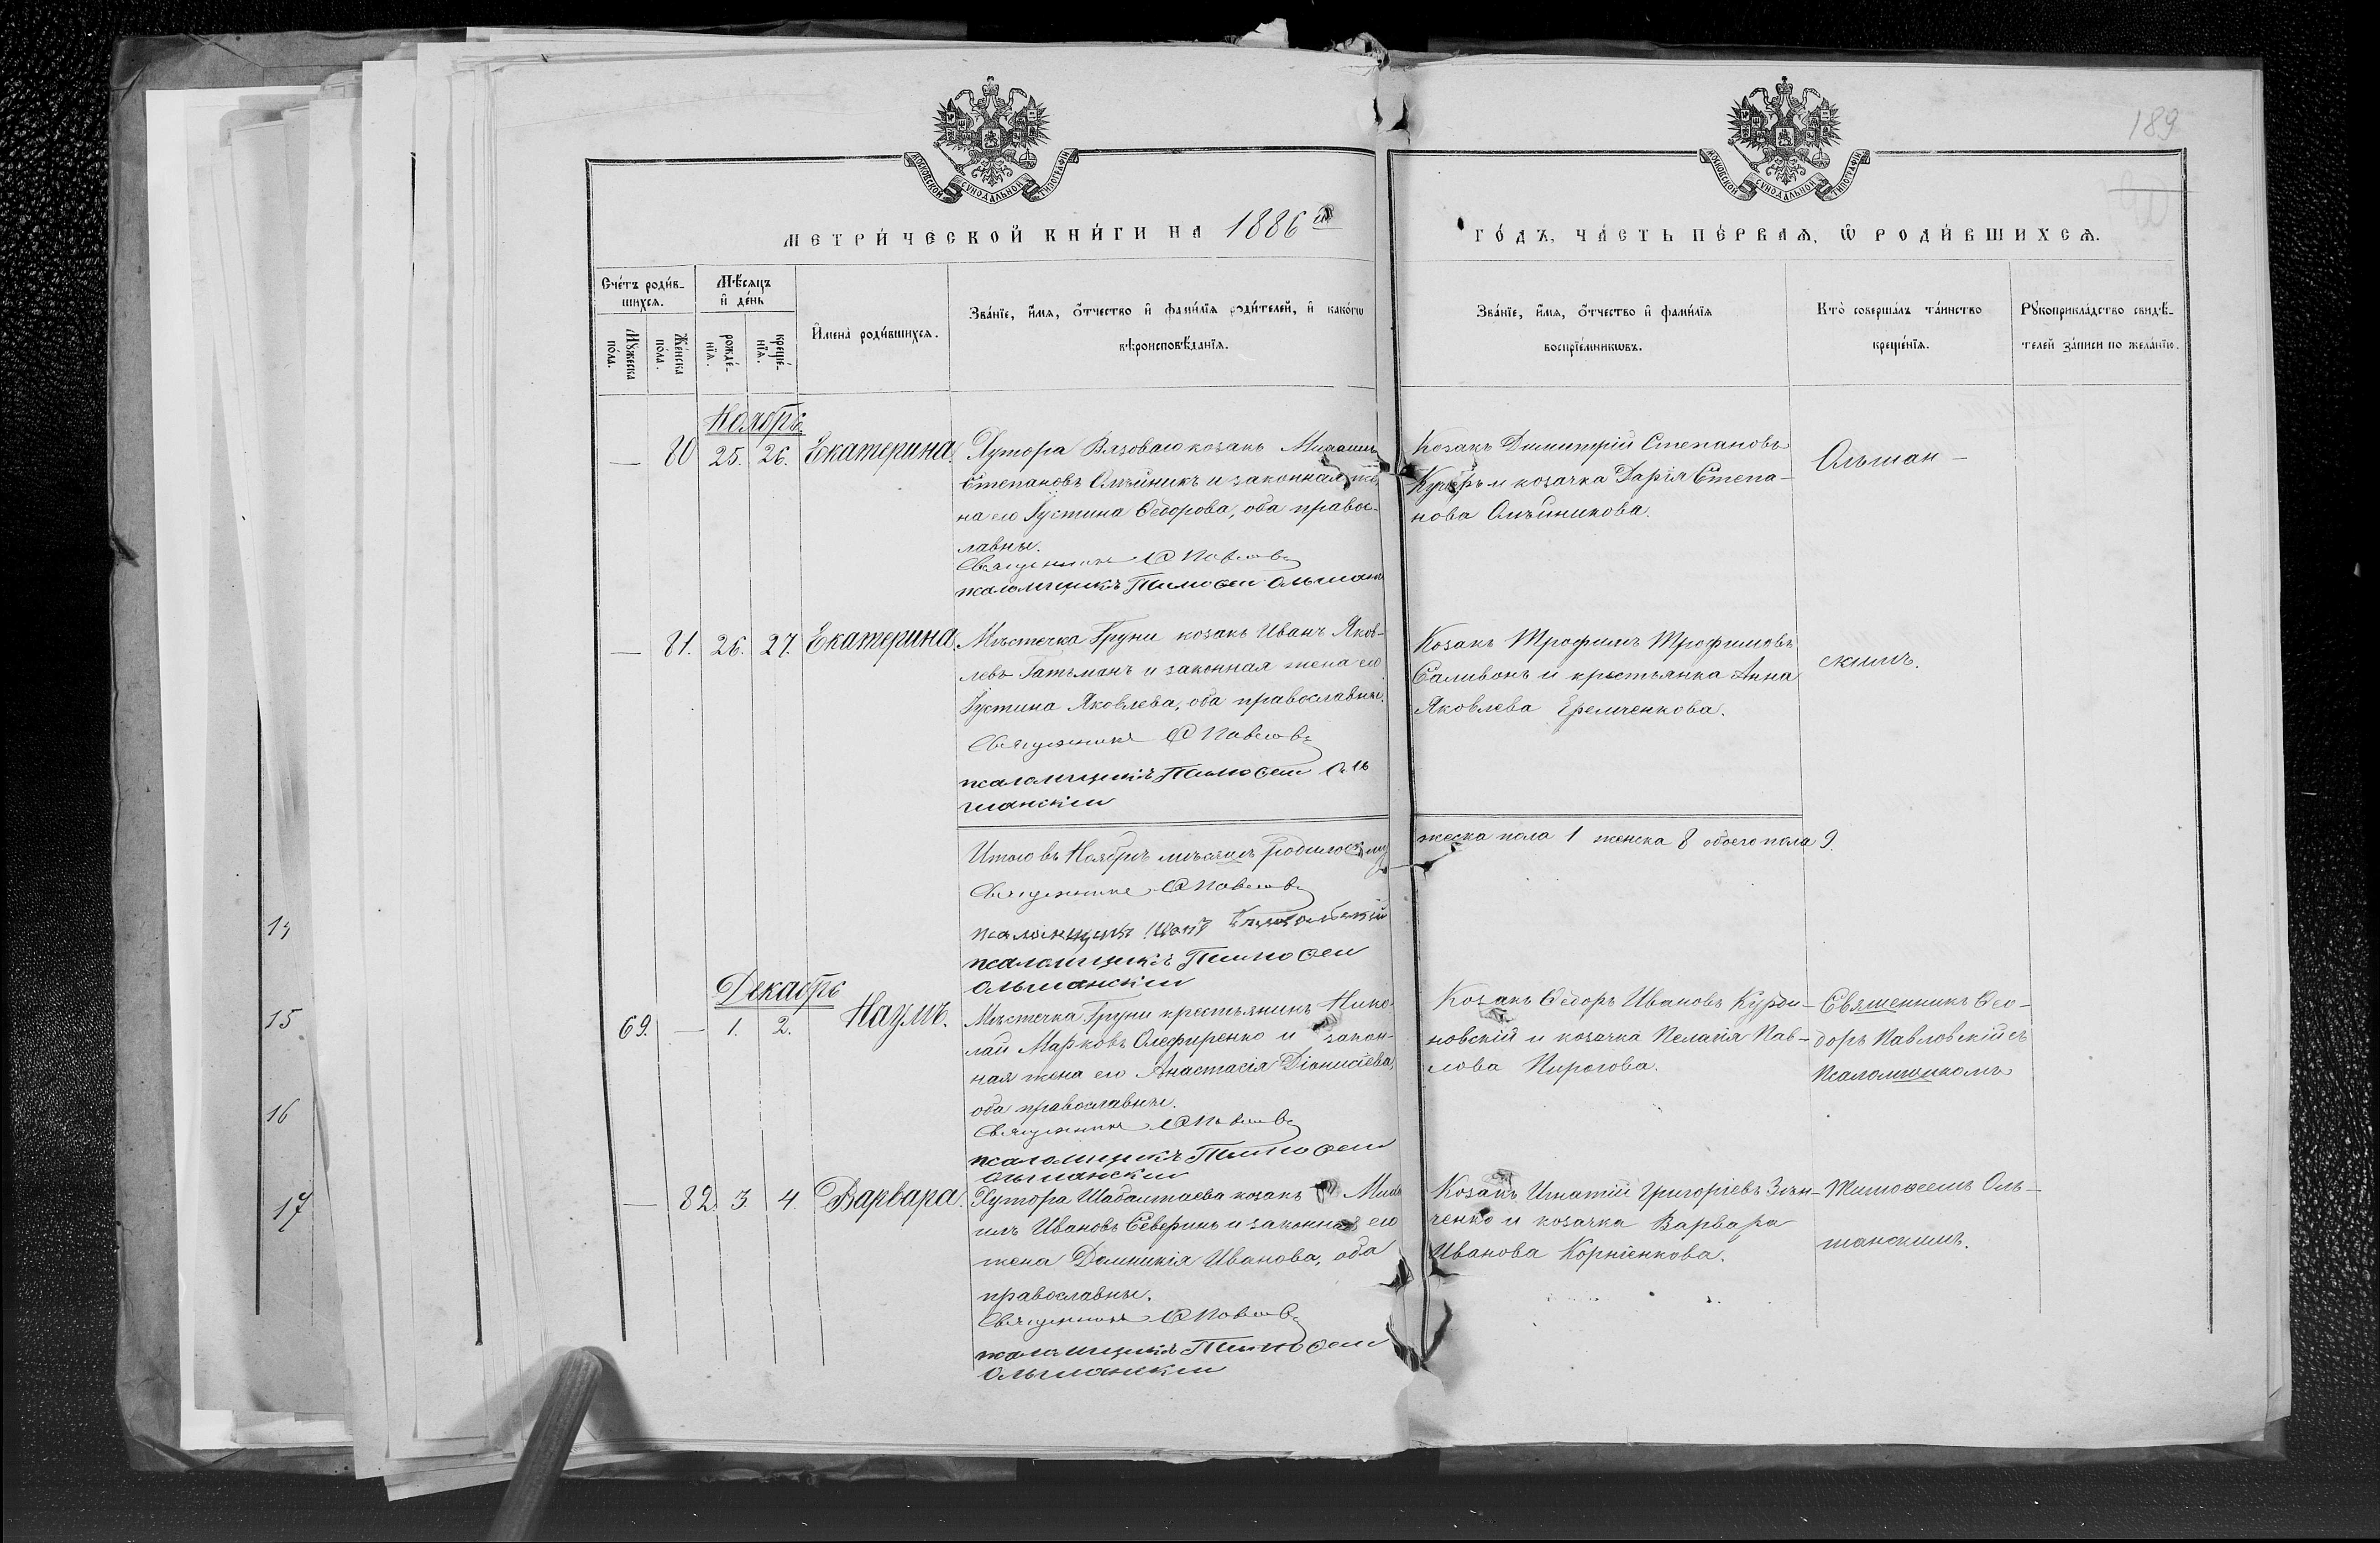 189
МОСКОВСКОЙ СѴНОДАЛЬНОЙ ТИПОГРАФІИ
МОСКОВСКОЙ СѴНОДАЛЬНОЙ ТИПОГРАФІИ
МЕТРИ́ЧЕСКОЙ КНИ́ГИ НА 1886 й
ГО́ДЪ, ЧА́СТЬ ПЕ́РВАѦ, Ѿ РОДИ́ВШИХСѦ.
Сче́тъ роди́в-
шихсѧ.
Мꙋ́жеска
по́ла.
Же́нска
по́ла.
Мѣ́сѧцъ
и҆ де́нь
рожде́-
нїѧ.
креще́-
нїѧ.
И҆мена̀ роди́вшихсѧ.
Зва́нїе, и҆́мѧ, ѻ҆́тчество и҆ фами́лїѧ роди́телей, и҆ како́гѡ
вѣроисповѣ́данїѧ.
Зва́нїе, и҆́мѧ, ѻ҆́тчество и҆ фами́лїѧ
воспрїе́мникѡвъ.
Кто̀ соверша́лъ та́инство
креще́нїѧ.
Рꙋкоприкла́дство свидѣ́-
телей за́писи по жела́нїю.
Ноябрь
— 80 25. 26. Екатерина.
Хутора Вязоваго козакъ Михаилъ
Степановъ Олѣйникъ и законная же-
на его Іустина Ѳедорова, оба правос-
лавны.
Священникъ Ѳ Павлов
псаломщикъ Тимоѳей Ольшан
Козакъ Димитрій Степановъ
Кучеръ и козачка Дарія Степа-
нова Олѣйникова.
Ольшан-
— 81. 26. 27. Екатерина.
Мѣстечка Груни козакъ Иванъ Яков-
левъ Гатьманъ и законная жена его
Іустина Яковлева, оба православны.
Священникъ Ѳ Павлов
псаломщикъ Тимоѳей Оль
шанскій
Козакъ Трофимъ Трофимовъ
Саливонъ и крестьянка Анна
Яковлева Еремченкова.
скимъ.
Итого въ Ноябрѣ мѣсяцѣ родилось му
жеска пола 1 женска 8 обоего пола 9.
Священникъ Ѳ Павлов
псаломщикъ
псаломщикъ Тимоѳей
Ольшанскій
Декабрь
69. — 1. 2. Наумъ.
Мѣстечка Груни крестьянинъ Нико-
лай Марковъ Олефиренко и закон-
ная жена его Анастасія Діонисіева,
оба православны.
Священникъ Ѳ Павлов
псаломщикъ Тимоѳей
Ольшанскій
Козакъ Ѳедоръ Ивановъ Курди-
новскій и козачка Пелагія Пав-
лова Пирогова.
Священникъ Ѳео-
доръ Павловскій съ
Псаломщикомъ
— 82. 3. 4. Варвара.
Хутора Шабалтаева козакъ Миха
илъ Ивановъ Северинъ и законная его
жена Домникія Иванова, оба
православны.
Священникъ Ѳ Павлов
псаломщикъ Тимоѳей
Ольшанскій
Козакъ Игнатій Григоріевъ Зѣн-
ченко и козачка Варвара
Иванова Корніенкова.
Тимоѳеемъ Оль-
шанскимъ.
15
16
17